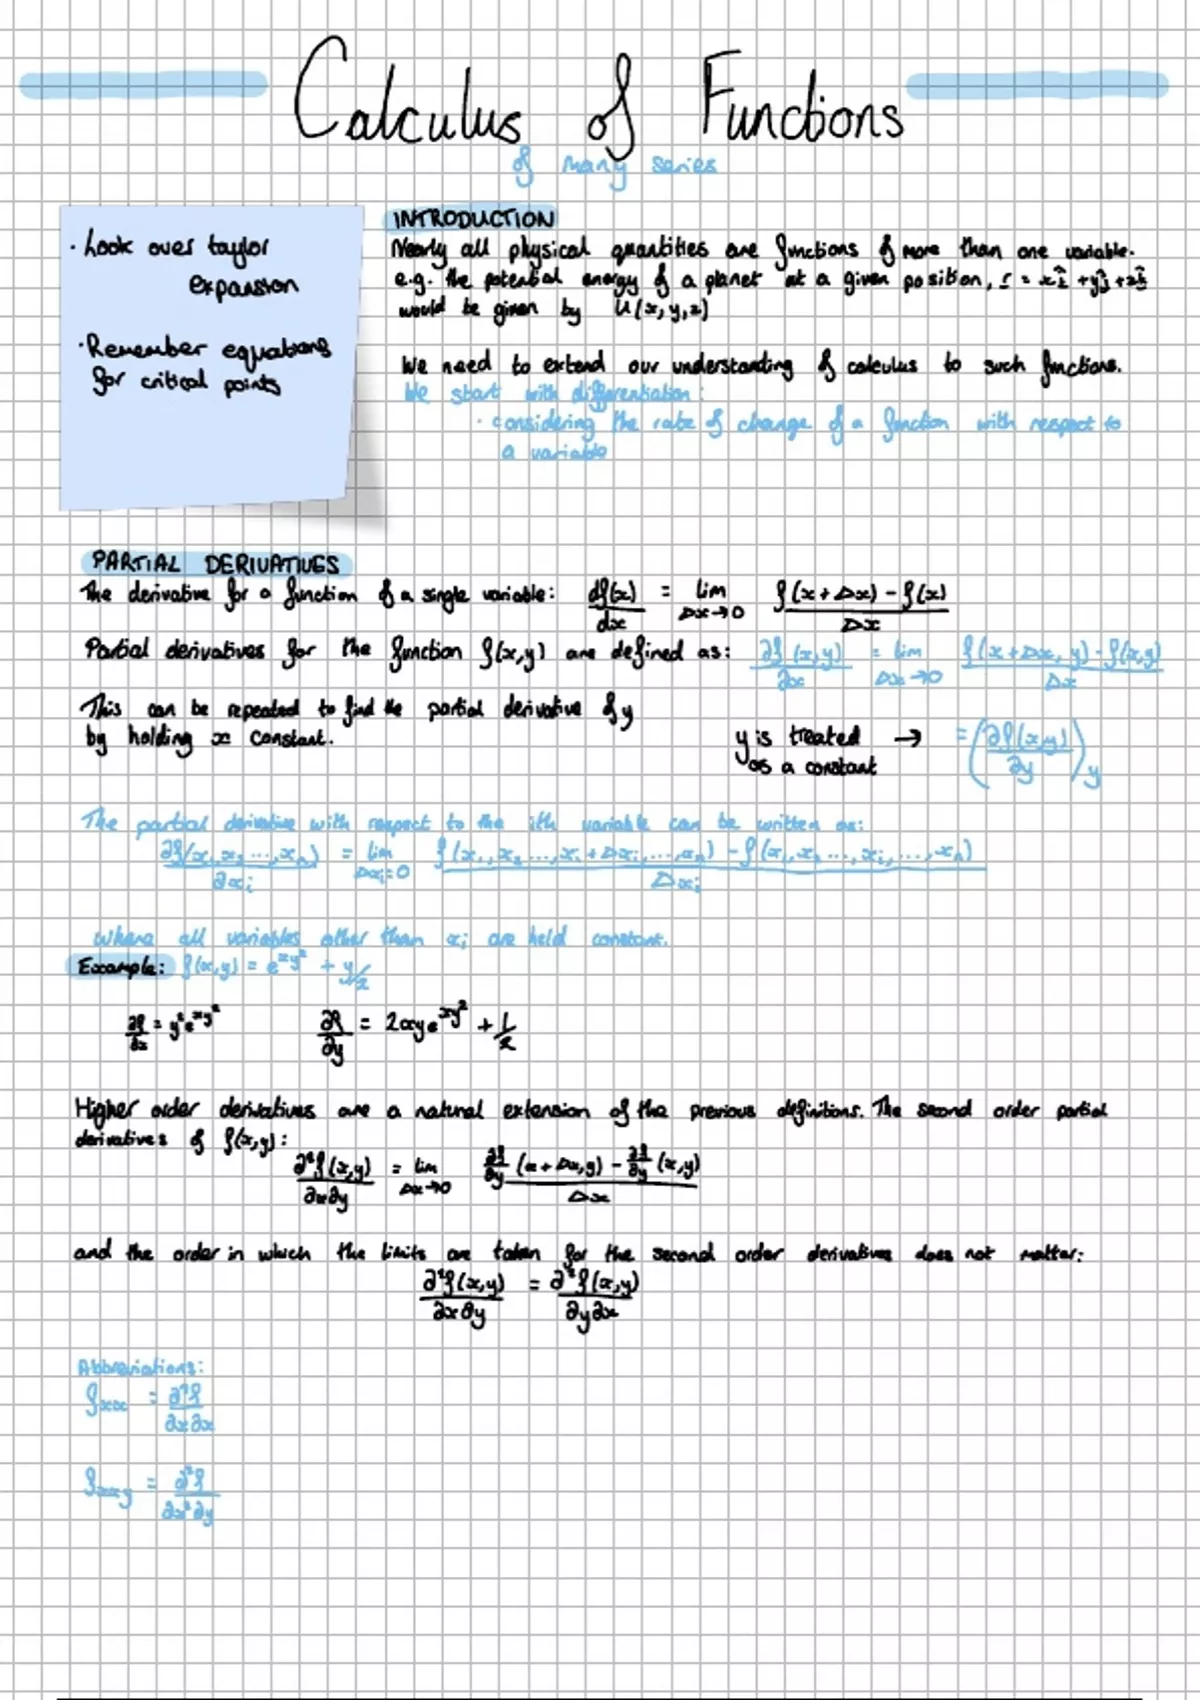 Calculus of Functions
of many series
· Look over taylor
expansion
· Remember equations
for critical points
INTRODUCTION
Nearly all physical quantities are functions of more than one variable.
e.g. the potential energy of a planet at a given position, r = xî + yĵ + zk̂
would be given by U(x,y,z)
We need to extend our understanding of calculus to such functions.
We start with differentiation:
· considering the rate of change of a function with respect to
a variable
PARTIAL DERIVATIVES
The derivative for a function of a single variable: df(x)/dx = lim Δx→0 f(x+Δx) - f(x) / Δx
Partial derivatives for the function f(x,y) are defined as: ∂f(x,y)/∂x = lim Δx→0 f(x+Δx, y) - f(x,y) / Δx
This can be repeated to find the partial derivative of y
by holding x constant.
y is treated → = (∂f(x,y)/∂y)y
as a constant
The partial derivative with respect to the ith variable can be written as:
∂f(x₁,x₂...,xₙ)/∂xᵢ = lim Δxᵢ=0 f(x₁,x₂...,xᵢ+Δxᵢ,...,xₙ) - f(x₁,x₂...,xᵢ,...,xₙ) / Δxᵢ
where all variables other than xᵢ are held constant.
Example: f(x,y) = e^xy² + y/x
∂f/∂x = y²e^xy² ∂f/∂y = 2xye^xy² + 1/x
Higher order derivatives are a natural extension of the previous definitions. The second order partial
derivatives of f(x,y):
∂²f(x,y)/∂x∂y = lim Δx→0 ∂f/∂y (x+Δx,y) - ∂f/∂y (x,y) / Δx
and the order in which the limits are taken for the second order derivatives does not matter:
∂²f(x,y)/∂x∂y = ∂²f(x,y)/∂y∂x
Abbreviations:
fxx = ∂²f/∂x∂x
fxxy = ∂³f/∂x²∂y